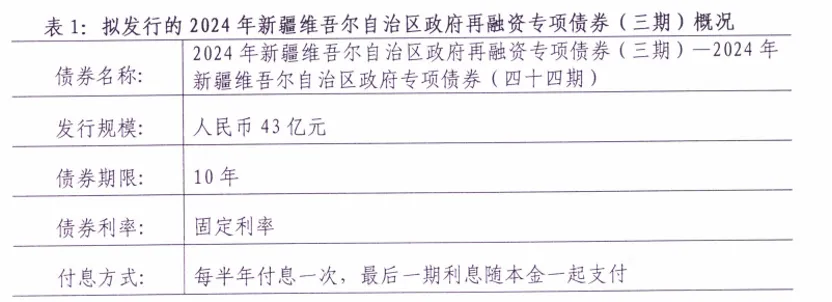 表1：拟发行的2024年新疆维吾尔自治区政府再融资专项债券（三期）概况
债券名称：
2024年新疆维吾尔自治区政府再融资专项债券（三期）—2024年
新疆维吾尔自治区政府专项债券（四十四期）
发行规模：
人民币43亿元
债券期限：
10年
债券利率：
固定利率
付息方式：
每半年付息一次，最后一期利息随本金一起支付